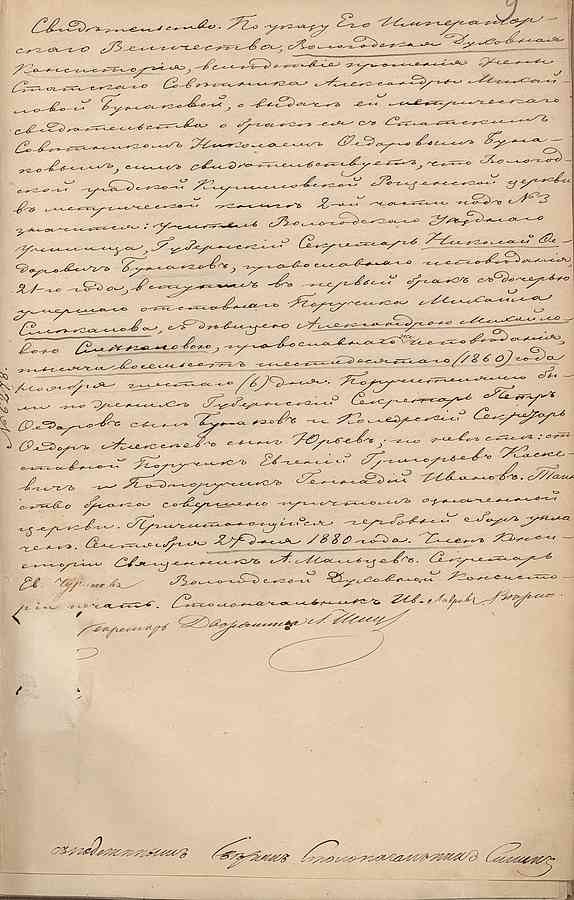 9
Свидѣтельство. По указу Его Император-
скаго Величества, Вологодская Духовная
Консисторія, вслѣдствіе прошенія жены
Статскаго Совѣтника Александры Михай-
ловой Бунаковой, о выдачѣ ей метрическаго
свидѣтельства о бракѣ ея съ Статскимъ
Совѣтникомъ Николаемъ Ѳедоровымъ Буна-
ковымъ, симъ свидѣтельствуетъ, что Вологод-
ской градской Кирилловской Рощенской церкви
въ метрической книгѣ 2-ой части подъ №3
значится: учитель Вологодскаго Уѣзднаго
Училища, Губернскій Секретарь Николай Ѳе-
доровичъ Бунаковъ, православнаго исповѣданія,
21-го года, вступилъ въ первый бракъ съ дочерью
умершаго отставнаго Поручика Михаила
съ дѣвицею Александрою Михайло-
вою православнаго исповѣданія,
тысяча восемьсотъ шестидесятаго (1860) года
Ноября шестаго (6) дня. Поручителями бы-
ли по женихѣ: Губернскій Секретарь Петръ
Ѳедоровъ сынъ Бунаковъ и Коллежскій Секретарь
Ѳедоръ Алексѣевъ сынъ Юрьевъ; по невѣстѣ: от-
ставной Поручикъ Евгеній Григорьевъ Каске-
вичъ и Подпоручикъ Геннадій Ивановъ. Таин
ство брака совершено причтомъ означенной
церкви. Причитающійся гербовый сборъ упла
ченъ. Сентября 27 дня 1880 года. Членъ Конси-
сторіи Священникъ А. Мальцевъ. Секретарь
Ев. Вологодской Духовной Консисто-
ріи печать. Столоначальникъ Ив.
Секретарь
Столоначальника